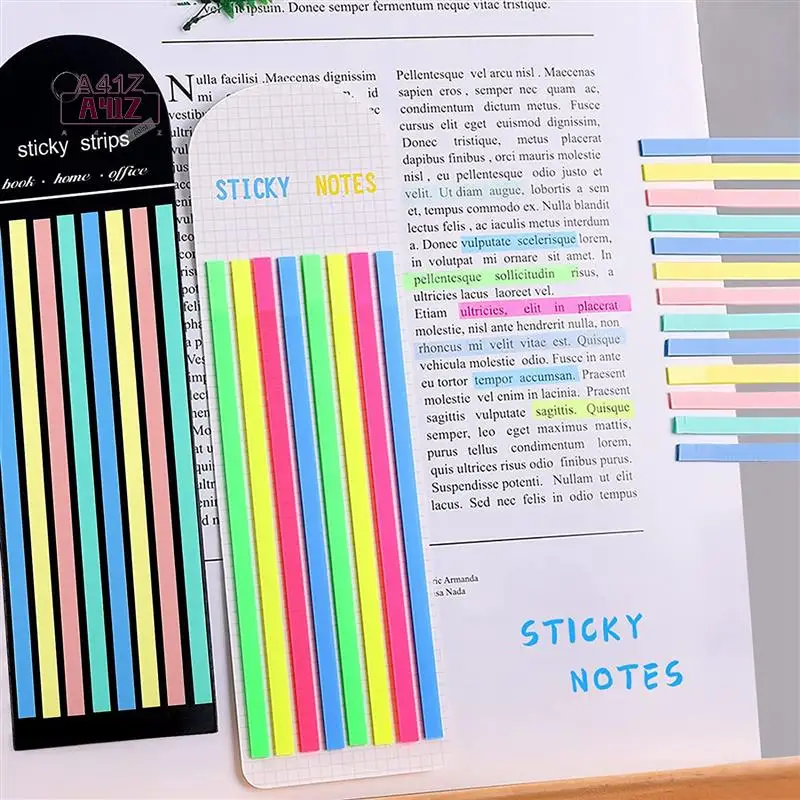 Donec semper fermentum neque vitae tristique.
A41Z
A41Z
sticky strips
book · home · office
STICKY NOTES
Nulla facilisi .Maecenas dignissim
Pellentesque vel arcu nisl . Maecenas
sapien eros , semper nec quam ac,
condimentum dictum metus. Fusce
cursus elit eget euismod dignissim,
Donec tristique, metus placerat
dapibus finibus , orci mauris molestie
nisl , eu pellentesque odio justo et
velit. Ut diam augue, lobortis a sem
et, tempus commodo ex. Nulla blandit
lectus felis , ac iaculis metus interdum
a. Donec vulputate scelerisque lorem,
in volutpat mi ornare sit amet. In
pellentesque sollicitudin risus, a
ultricies lacus laoreet vel.
Etiam ultricies, elit in placerat
molestie, nisl ante hendrerit nulla, non
rhoncus mi velit vitae est. Quisque
vehicula molestie odio. Fusce in ante
eu tortor tempor accumsan. Praesent
molestie vel enim in lacinia. Praesent
sagittis vulputate sagittis. Quisque
semper, leo eget maximus mattis,
purus tellus condimentum lorem,
quis ultrices risus odio finibus purus.
Suspendisse potenti. Nullam ut elit
lacus. Sed nec felis in odio tempus
Armanda
Nada
STICKY
NOTES